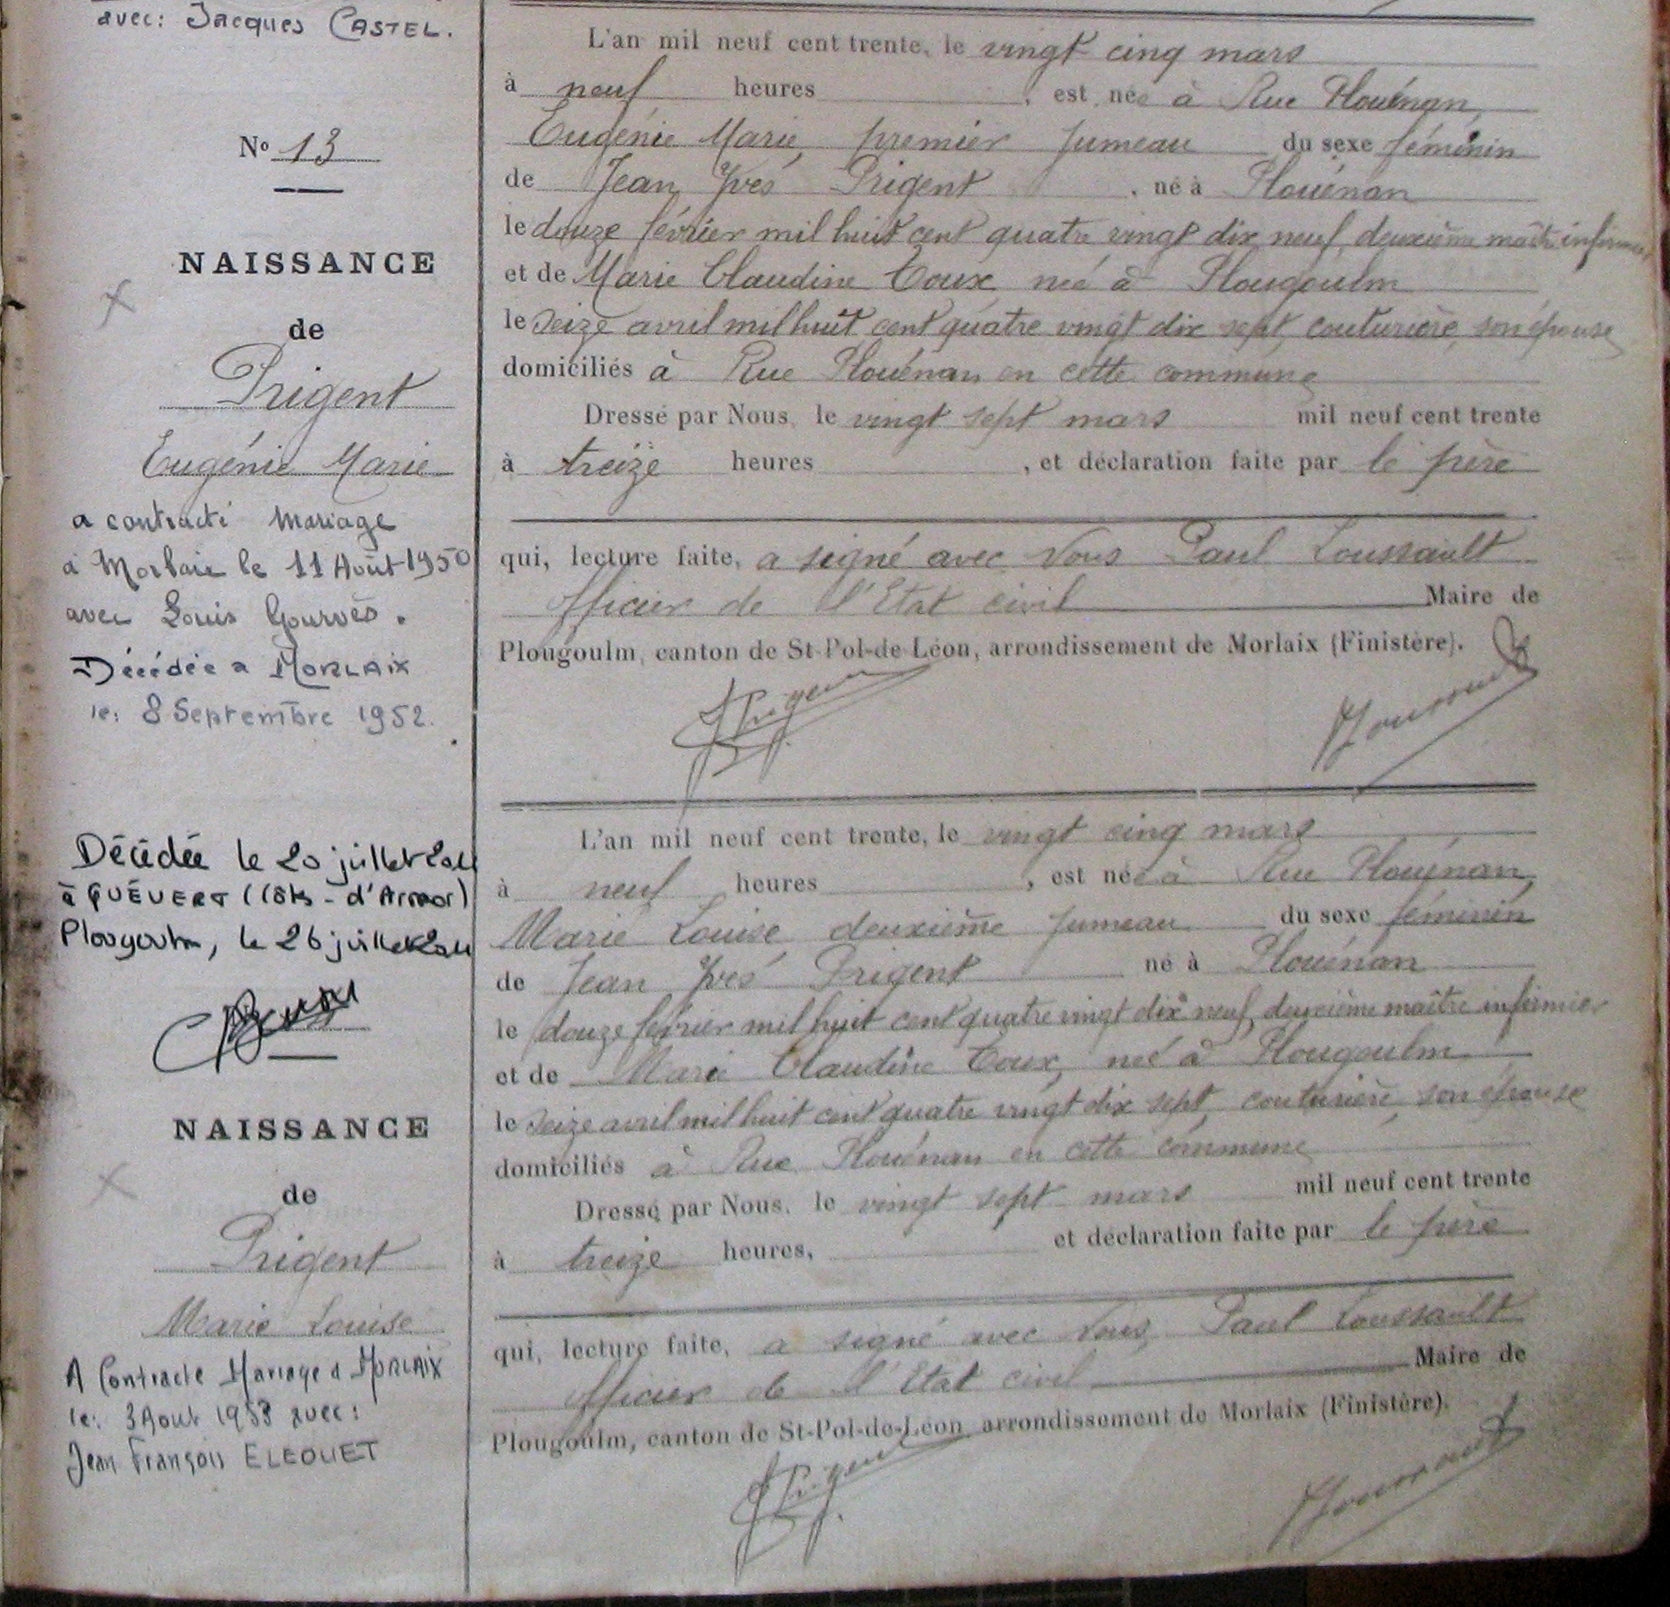 avec: Jacques CASTEL.
Nº 13
NAISSANCE
de
Prigent
Eugénie Marie
a contracté mariage
à Morlaix le 11 Août 1950
avec Louis Gourvès.
Décédée a MORLAIX
le: 8 Septembre 1952.
L'an mil neuf cent trente, le vingt cinq mars
à neuf heures , est née à Rue Plouénan,
Eugénie Marie, premier jumeau du sexe féminin
de Jean Yves Prigent , né à Plouénan
le douze février mil huit cent quatre vingt dix neuf, deuxième maître infirmier
et de Marie Claudine Coux née à Plougoulm
le seize avril mil huit cent quatre vingt dix sept, couturière, son épouse
domiciliés à Rue Plouénan en cette commune
Dressé par Nous, le vingt sept mars mil neuf cent trente
à treize heures , et déclaration faite par le père
qui, lecture faite, a signé avec Nous Paul Loussault
Officier de l'Etat civil Maire de
Plougoulm, canton de St-Pol-de-Léon, arrondissement de Morlaix (Finistère).
Décédée le 20 juillet
à QUÉVERT (Côts-d'Armor)
Plougoulm, le 26 juillet
NAISSANCE
de
Prigent
Marie Louise
A Contracté Mariage à MORLAIX
le: 3 Aout 1953 avec:
Jean François ELEOUET
L'an mil neuf cent trente, le vingt cinq mars
à neuf heures , est née à Rue Plouénan,
Marie Louise deuxième jumeau du sexe féminin
de Jean Yves Prigent né à Plouénan
le douze février mil huit cent quatre vingt dix neuf, deuxième maître infirmier
et de Marie Claudine Coux, née à Plougoulm
le seize avril mil huit cent quatre vingt dix sept, couturière, son épouse
domiciliés à Rue Plouénan en cette commune
Dressé par Nous, le vingt sept mars mil neuf cent trente
à treize heures, et déclaration faite par le père
qui, lecture faite, a signé avec Nous, Paul Loussault
Officier de l'Etat civil Maire de
Plougoulm, canton de St-Pol-de-Léon, arrondissement de Morlaix (Finistère).